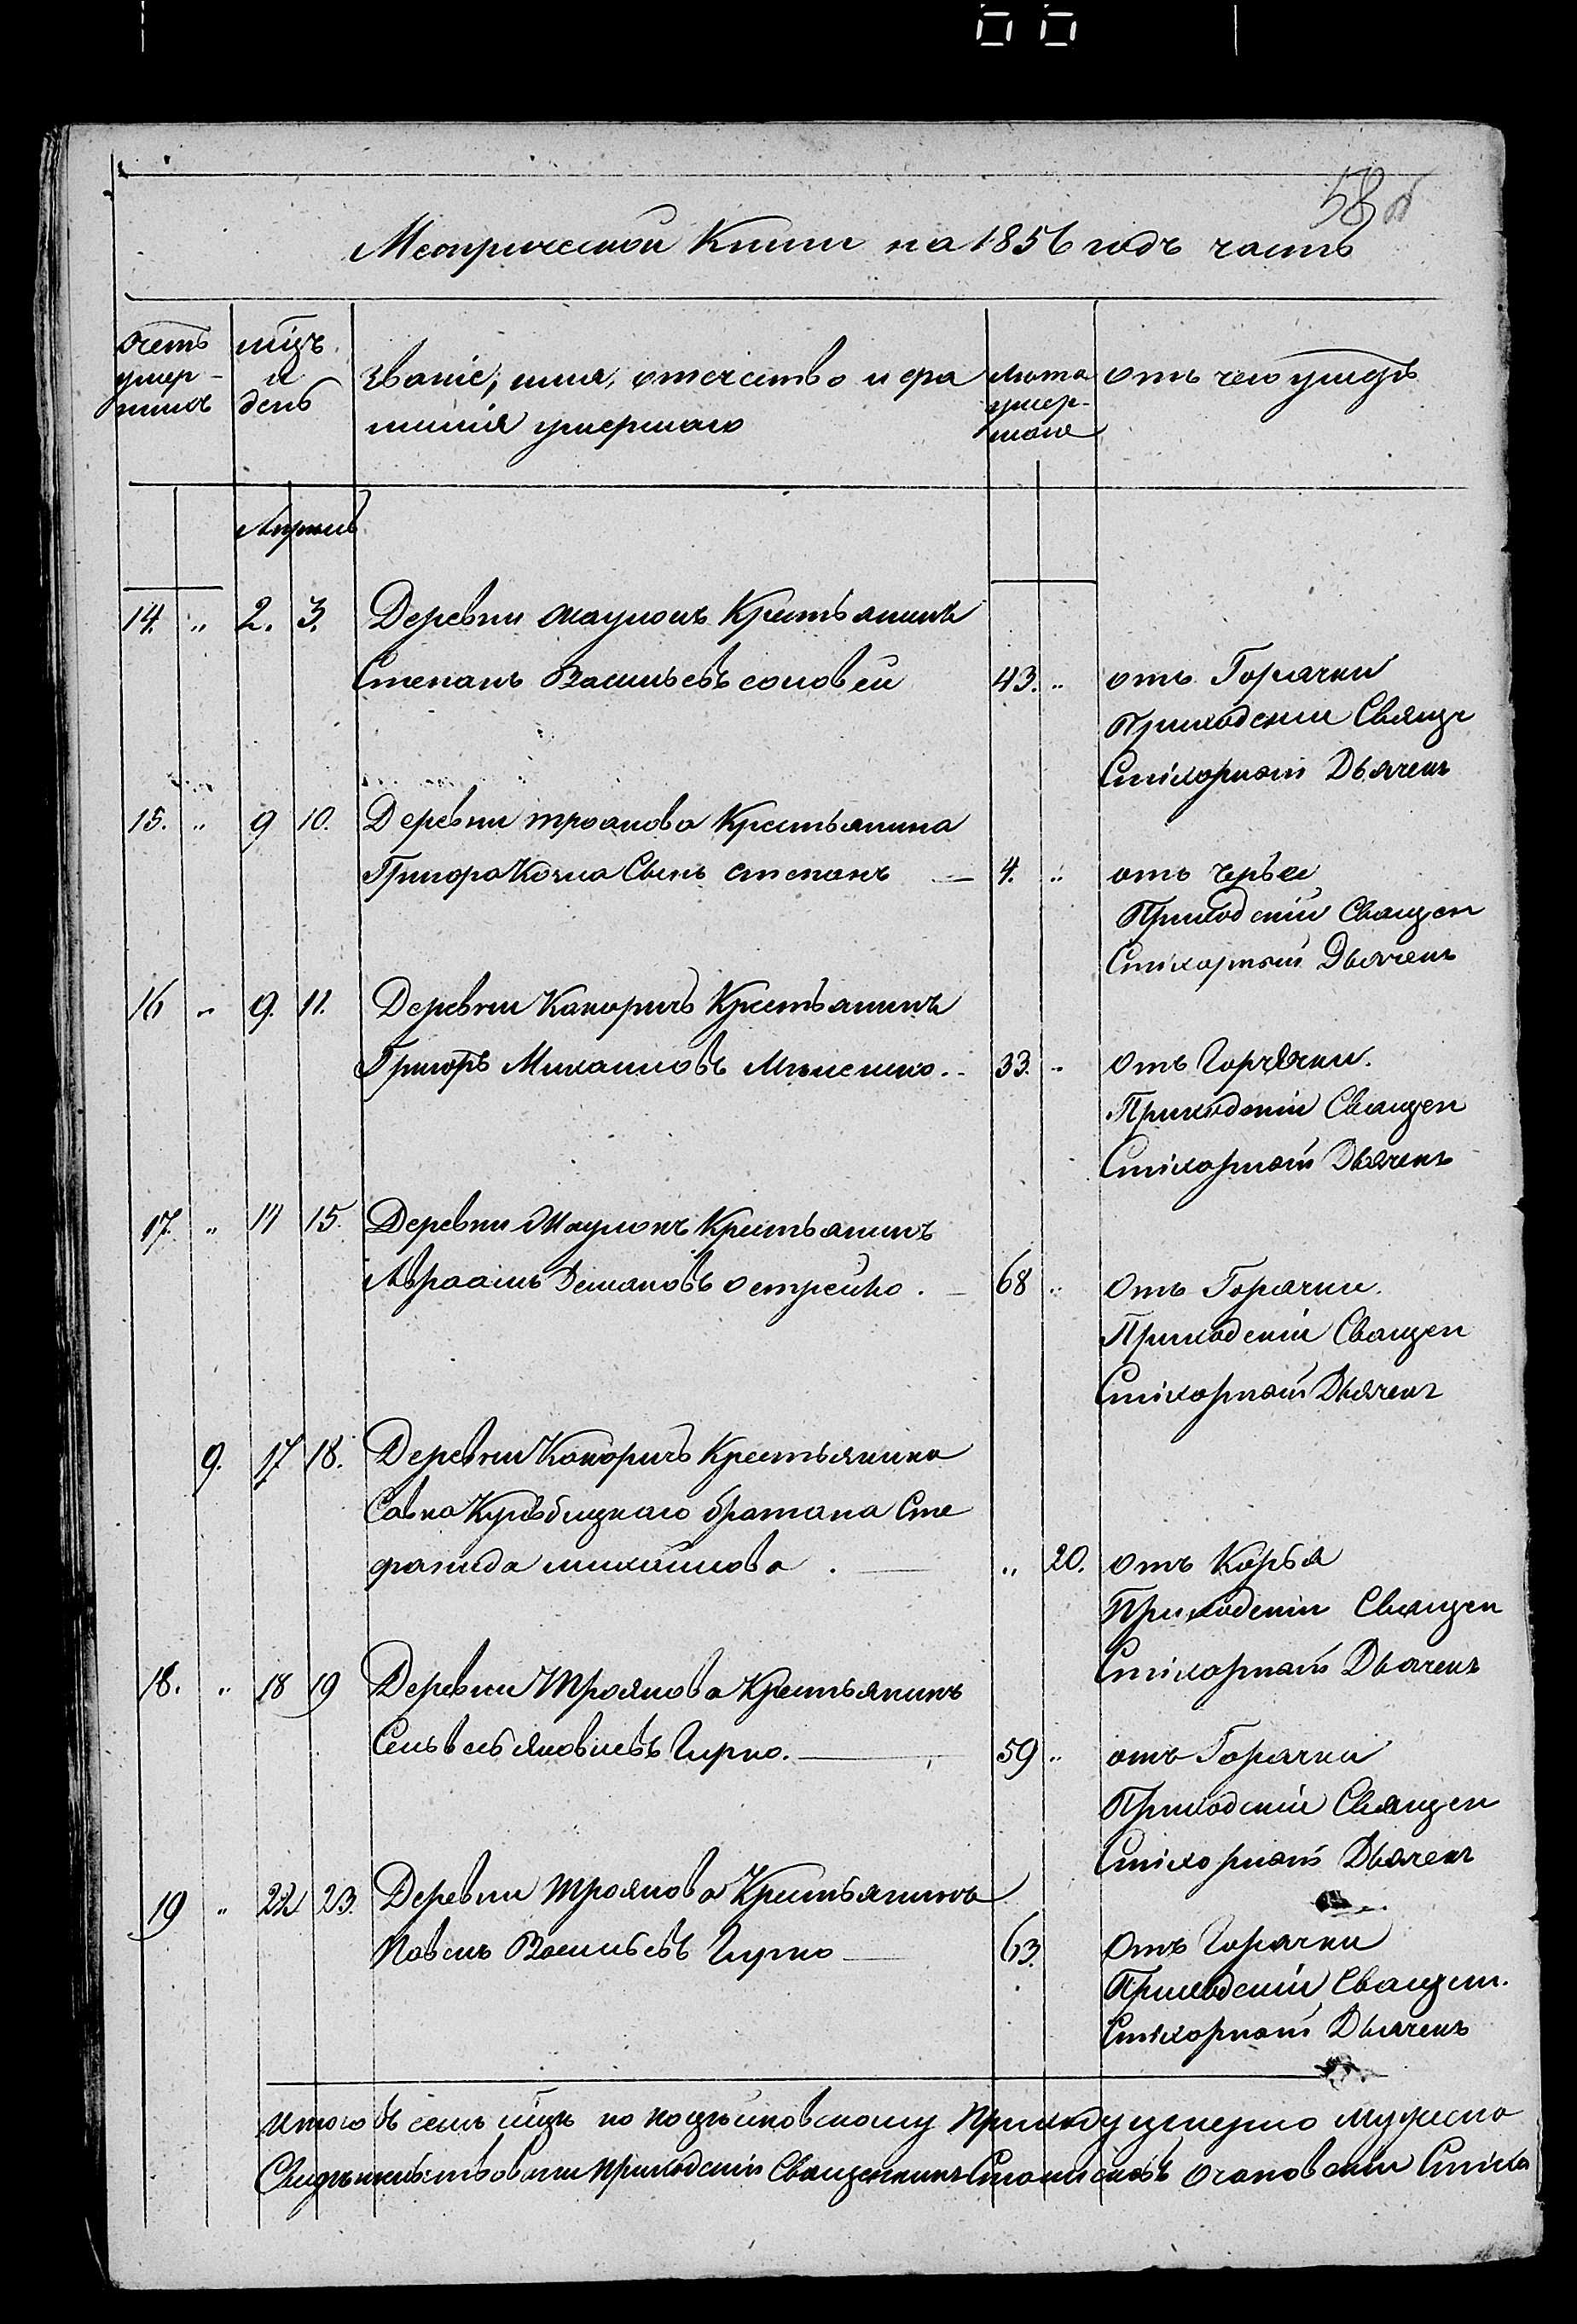 58 об
Метрической Книги на 1856 годъ часть
Счетъ умер-шихъ
мцъ и день
званіе, имя, отечество и фа
милія умершаго
лѣта умер-шаго
отъ чего умеръ
Апрель
14. " 2. 3. Деревни Крестьянинъ
Степанъ Васильевъ соловей 43. " отъ Горячки
Приходскій Свящ
Стіхорный Дьячекъ
15. " 9 10. Деревни троянова Крестьянина
Григора Сынъ степанъ — 4. " отъ
Приходскій Священ
Стіхорный Дьячекъ
16 " 9. 11. Деревни Крестьянинъ
Григоръ Михаиловъ 33. " Отъ Горячки.
Приходскій Священ
Стіхорный Дьячекъ
17. " 14 15. Деревни Крестьянинъ
Авраамъ Демяновъ острейко. — 68 " Отъ Горячки.
Приходскій Священ
Стіхорный Дьячекъ
9. 17 18. Деревни Крестьянина
Савка братана Сте
фанида михаилова. — " 20. отъ Корья
Приходскій Священ
Стіхорный Дьячекъ
18. " 18 19 Деревни Троянова Крестьянинъ
яковлевъ Гирко. — 59 " отъ Горячки
Приходскій Священ
Стіхорный Дьячекъ
19 " 22 23. Деревни Троянова Крестьянинъ
Павелъ Васильевъ Гирко — 63. Отъ Горячки
Приходскій Священ.
Стіхорный Дьячекъ
Итого въ семъ мцъ по Приходу умерло мужеска
Свидетельствовали Приходскій Священникъ Станиславъ